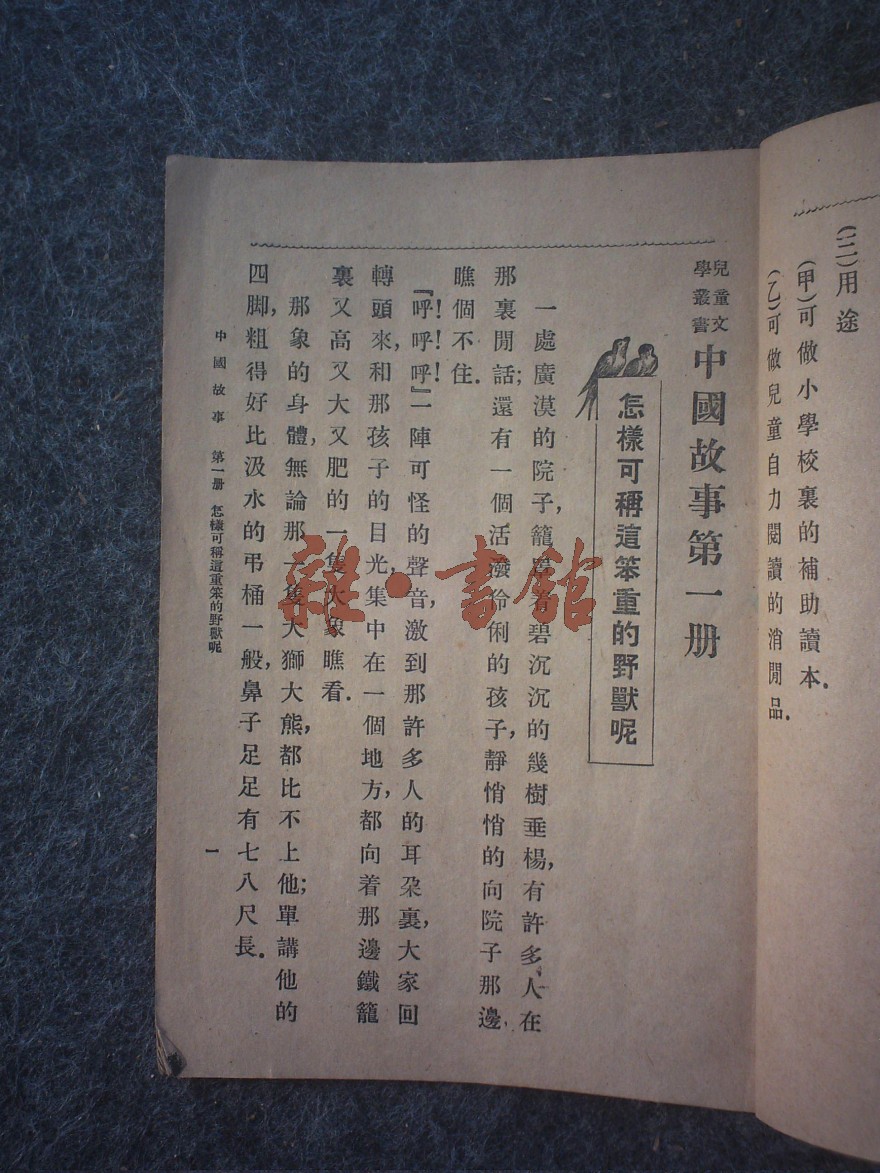 (三)用途
(甲)可做小學校裏的補助讀本.
(乙)可做兒童自力閱讀的消閒品.
兒童文學叢書 中國故事第一册
怎樣可稱這笨重的野獸呢
一處廣漠的院子,籠罩着碧沉沉的幾樹垂楊,有許多人在
那裏閒話;還有一個活潑伶俐的孩子,靜悄悄的向院子那邊,
瞧個不住.
『呼!呼!呼!』一陣可怪的聲音,激到那許多人的耳朶裏,大家回
轉頭來,和那孩子的目光,集中在一個地方,都向着那邊鐵籠
裏又高又大又肥的一隻大象瞧看.
那象的身體,無論那一隻大獅大熊,都比不上他;單講他的
四脚,粗得好比汲水的弔桶一般,鼻子足足有七八尺長.
中國故事 第一册 怎樣可稱這重笨的野獸呢
一
雜·書館